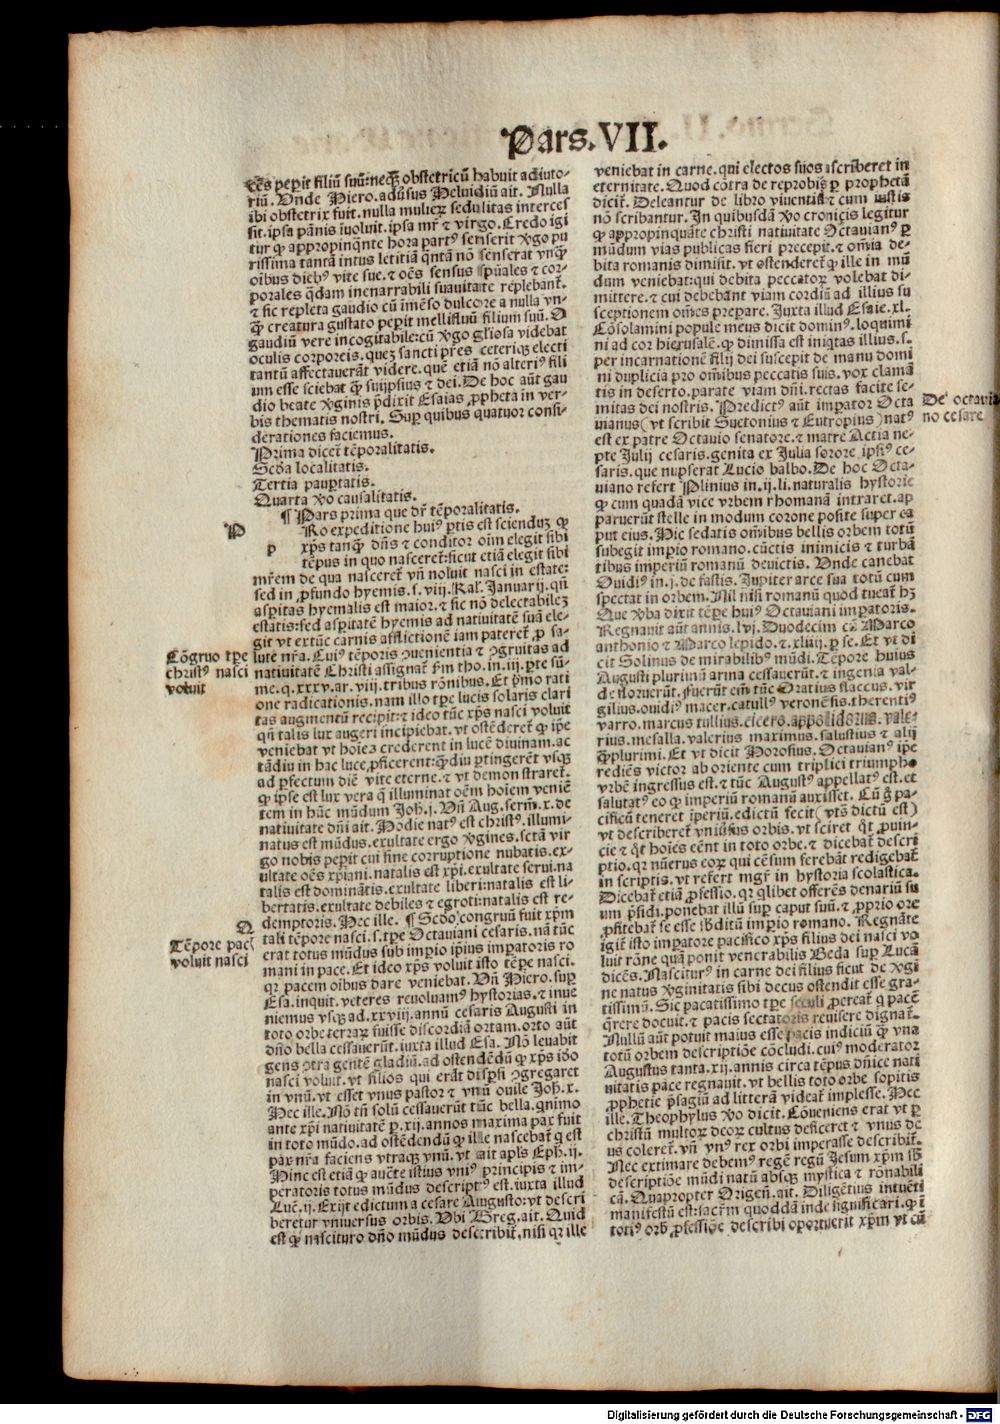 Pars.VII.
ces peperit filiũ suũ: neqȝ obstetricũ habuit adiuto-
riũ. Vnde Hiero. aduersus Heluidiũ ait. Nulla
ibi obstetrix fuit. nulla mulieꝝ sedulitas interces
sit. ipsa pãnis iuoluit. ipsa mr̃ ⁊ virgo. Credo igi
tur ꝙ appropinqnte hora partꝰ senserit ꝟgo pu
rissima tantã intus letitiã qntã nõ senserat vnqȝ
oĩbus diebꝰ vite sue. ⁊ oẽs sensus spũales ⁊ cor-
porales qdam inenarrabili suauitate replebant̃.
⁊ sic repleta gaudio cũ imẽso dulcore a nulla vn-
qȝ creatura gustato peperit mellifluũ filium suũ. O
gaudiũ vere incogitabile: cũ ꝟgo gl̃iosa videbat
oculis corporeis. quẽ sancti pr̃es ceteriqȝ electi
tantũ affectauerãt videre. quẽ etiã nõ alteriꝰ fili
um esse sciebat qȝ suijpsius ⁊ dei. De hoc aũt gau
dio beate ꝟginis p̃dixit Esaias ꝓpheta in ver-
bis thematis nostri. Sup quibus quatuor consi-
derationes faciemus.
Prima dicet̃ tẽporalitatis.
Scd̃a localitatis.
Tertia paup̱tatis.
Quarta ꝟo causalitatis.
¶ Pars prima que dr̃ tẽporalitatis.
P
p
Ro expeditione huiꝰ p̱tis est sciendũ ꝙ
xp̃s tanqȝ dñs ⁊ conditor oĩm elegit sibi
tẽpus in quo nasceret̃: sicut etiã elegit sibi
mr̃em de qua nasceret̃. vñ noluit nasci in estate:
sed in ꝓfundo hyemis. s. viij. Kal. Januarij. qñ
asp̱itas hyemalis est maior. ⁊ sic nõ delectabileȝ
estatis: sed asp̱itatẽ hyemis ad natiuitatẽ suã ele-
git vt extũc carnis afflictionẽ iam pateret̃ ꝓ sa-
Cõgruo tp̃e
christꝰ nasci
voluit
lute nr̃a. Cuiꝰ tẽporis ꝯuenientia ⁊ ꝯgruitas ad
natiuitatẽ Christi assignat̃ ẜm tho. in. iij. p̱te sũ-
me. q. xxxv. ar. viij. tribus rõnibus. Et p̃mo rati
one radicationis. nam illo tp̃e lucis solaris clari
tas augmentũ recipit: ⁊ ideo tũc xp̃s nasci voluit
qñ talis lux augeri incipiebat. vt ostẽderet̃ ꝙ ip̃e
veniebat vt hoĩes crederent in lucẽ diuinam. ac
tãdiu in hac luce ꝓficerent: qȝdiu p̱tingerẽt vsqȝ
ad p̱fectum diẽ vite eterne. ⁊ vt demonstraret̃
ꝙ ip̃e est lux vera q̃ illuminat oẽm hoiem veniẽ
tem in hũc mũdum Joh̃. j. Vñ Aug. serm̃. x. de
natiuitate dñi ait. Hodie natꝰ est christꝰ. illumi-
natus est mũdus. exultate ergo ꝟgines. sctã vir
go nobis peperit cui sine corruptione nubatis. ex-
ultate oẽs xp̃iani. natalis est xp̃i. exultate serui. na
talis est dominãtis. exultate liberi: natalis est li-
bertatis. exultate debiles ⁊ egroti: natalis est re-
demptoris. Hec ille. ¶ Scd̃o congruũ fuit xp̃m
Q
Tẽpore pacis
voluit nasci
tali tẽpore nasci. s. tp̃e Octauiani cesaris. nã tũc
erat totus mũdus sub imp̱io ip̃ius imp̱atoris ro
mani in pace. Et ideo xp̃s voluit isto tẽp̱e nasci.
qꝛ pacem oĩbus dare veniebat. Vñ Hiero. sup̱
Esa. inquit. veteres reuoluamꝰ hystorias. ⁊ inue
niemus vsqȝ ad. xxviij. annũ cesaris Augusti in
toto orbe terraꝝ fuisse discordiã ortam. orto aũt
dño bella cessauerũt. iuxta illud Esa. Nõ leuabit
gens ꝯtra gentẽ gladiũ. ad ostendẽdũ ꝙ xp̃s iõo
nasci voluit. vt filios qui erãt disp̱si ꝯgregaret
in vnũ. vt esset vnus pastor ⁊ vnũ ouile Joh̃. x.
Hec ille. Nõ tñ solũ cessauerũt tũc bella. qnimo
ante xp̃i natiuitatẽ p̱. xij. annos maxima pax fuit
in toto mũdo. ad ostẽdendũ ꝙ ille nascebat̃ q̃ est
pax nr̃a faciens vtraqȝ vnũ. vt ait apls Eph̃. ij.
Hinc est etiã ꝙ auctẽ istius vniꝰ principis ⁊ im-
peratoris totus mũdus descriptꝰ est. iuxta illud
Luc̃. ij. Exijt edictum a cesare Augusto: vt descri
beretur vniuersus orbis. Vbi Greg. ait. Quid
est ꝙ nascituro dño mũdus describit̃. nisi qꝛ ille
veniebat in carne. qui electos suos ascriberet in
eternitate. Quod cõtra de reprobis p̱ prophetã
dicit̃. Deleantur de libro viuentiũ ⁊ cum iustis
nõ scribantur. In quibusdã ꝟo cronicis legitur
ꝙ appropinquãte christi natiuitate Octauianꝰ p̱
mũdum vias publicas fieri precepit. ⁊ om̃ia de-
bita romanis dimisit. vt ostenderet̃ ꝙ ille in mũ
dum veniebat: qui debita peccatoꝝ volebat di-
mittere. ⁊ cui debebant viam cordiũ ad illius su
sceptionem om̃es prepare. Juxta illud Esaie. xl.
Cõsolamini popule meus dicit dominꝰ. loquimi
ni ad cor hierusalẽ. ꝙ dimissa est iniqtas illius. s.
per incarnationẽ filij dei suscepit de manu domi
ni duplicia pro om̃ibus peccatis suis. vox clamã
tis in deserto. parate viam dñi. rectas facite se-
mitas dei nostris. Predictꝰ aũt imp̱ator Octa
De octauia
no cesare
uianus (vt scribit Suetonius ⁊ Eutropius) natꝰ
est ex patre Octauio senatore. ⁊ matre Actia ne-
pte Julij cesaris. genita ex Julia sorore ipsiꝰ ce-
saris. que nupserat Lucio balbo. De hoc Octa-
uiano refert Plinius in. ij. li. naturalis hystorie
ꝙ cum quadã vice vrbem rhomanã intraret. ap
paruerũt stelle in modum corone posite super ca
put eius. Hic sedatis om̃ibus bellis orbem totũ
subegit imp̱io romano. cũctis inimicis ⁊ turbã
tibus imperiũ romanũ deuictis. Vnde canebat
Ouidiꝰ in. j. de fastis. Jupiter arce sua totũ cum
spectat in orbem. Nil nisi romanũ quod tueat̃ hȝ
Que ꝟba dixit tẽp̱e huiꝰ Octauiani imp̱atoris.
Regnauit aũt annis. lvj. Duodecim cũ Marco
anthonio ⁊ Marco lepido. ⁊. xliiij. p̱ se. Et vt di
cit Solinus de mirabilibꝰ mũdi. Tẽpore huius
Augusti plurimũ arma cessauerũt. ⁊ ingenia val-
de floruerũt. fuerũt em̃ tũc Oratius flaccus. vir
gilius. ouidiꝰ macer. catullꝰ veronẽsis. therentiꝰ
varro. marcus tullius. cicero. appolidorus. vale-
rius. mesalla. valerius maximus. salustius ⁊ alij
qȝplurimi. Et vt dicit Horosius. Octauianꝰ ip̃e
rediẽs victor ab oriente cum triplici triumpho
vrbẽ ingressus est. ⁊ tũc Augustꝰ appellatꝰ est. et
salutatꝰ eo ꝙ imperiũ romanũ auxisset. Cũ g̃ pa-
cificũ teneret ip̱eriũ. edictũ fecit (vt s̃ dictũ est)
vt describeret̃ vniuersus orbis. vt sciret qt̃ ꝓuin-
cie ⁊ qt̃ hoĩes eẽnt in toto orbe. ⁊ dicebat̃ descri
ptio. qꝛ nũerus eoꝝ qui cẽsum ferebãt redigebat̃
in scriptis. vt refert mgr̃ in hystoria scolastica.
Dicebat̃ etiã ꝓfessio. qꝛ qlibet offerẽs denariũ su
um p̃sidi. ponebat illũ sup̱ caput suũ. ⁊ ꝓprio ore
ꝓfitebat̃ se esse subditũ imp̱io romano. Regnãte
igit̃ isto imp̱atore pacifico xp̃s filius dei nasci vo
luit rõne quã ponit venerabilis Beda sup̱ Lucã
dicẽs. Nasciturꝰ in carne dei filius sicut de ꝟgi
ne natus ꝟginitatis sibi decus ostendit esse gra-
tissimũ. Sic pacatissimo tp̃e seculi ꝓcreat̃ q pacẽ
q̃rere docuit. ⁊ pacis sectatores reuisere dignat̃.
Nullũ aũt potuit maius esse pacis indiciũ ꝙ vna
totũ orbem descriptiõe cõcludi. cuiꝰ moderator
Augustus tanta. xij. annis circa tẽpus dñice nati
uitatis pace regnauit. vt bellis toto orbe sopitis
ꝓphetie p̃sagiũ ad litterã videat̃ implesse. Hec
ille. Theophylus ꝟo dicit. Cõueniens erat vt p̱
christũ multoꝝ deoꝝ cultus deficeret ⁊ vnus de
us coleret̃. vñ vnꝰ rex orbi imperasse describit̃.
Nec extimare debemꝰ regẽ regũ Jesum xp̃m sb̃
descriptiõe mũdi natũ absqȝ mystica ⁊ rõnabili
cã. Quapropter Origeñ. ait. Diligẽtius intuẽti
manifestũ est: sacr̃m quoddã inde significari. ꝙ ĩ
totiꝰ orbis ꝓfessiõe describi oportuerit xp̃m vt cũ
Digitalisierung gefördert durch die Deutsche Forschungsgemeinschaft - DFG